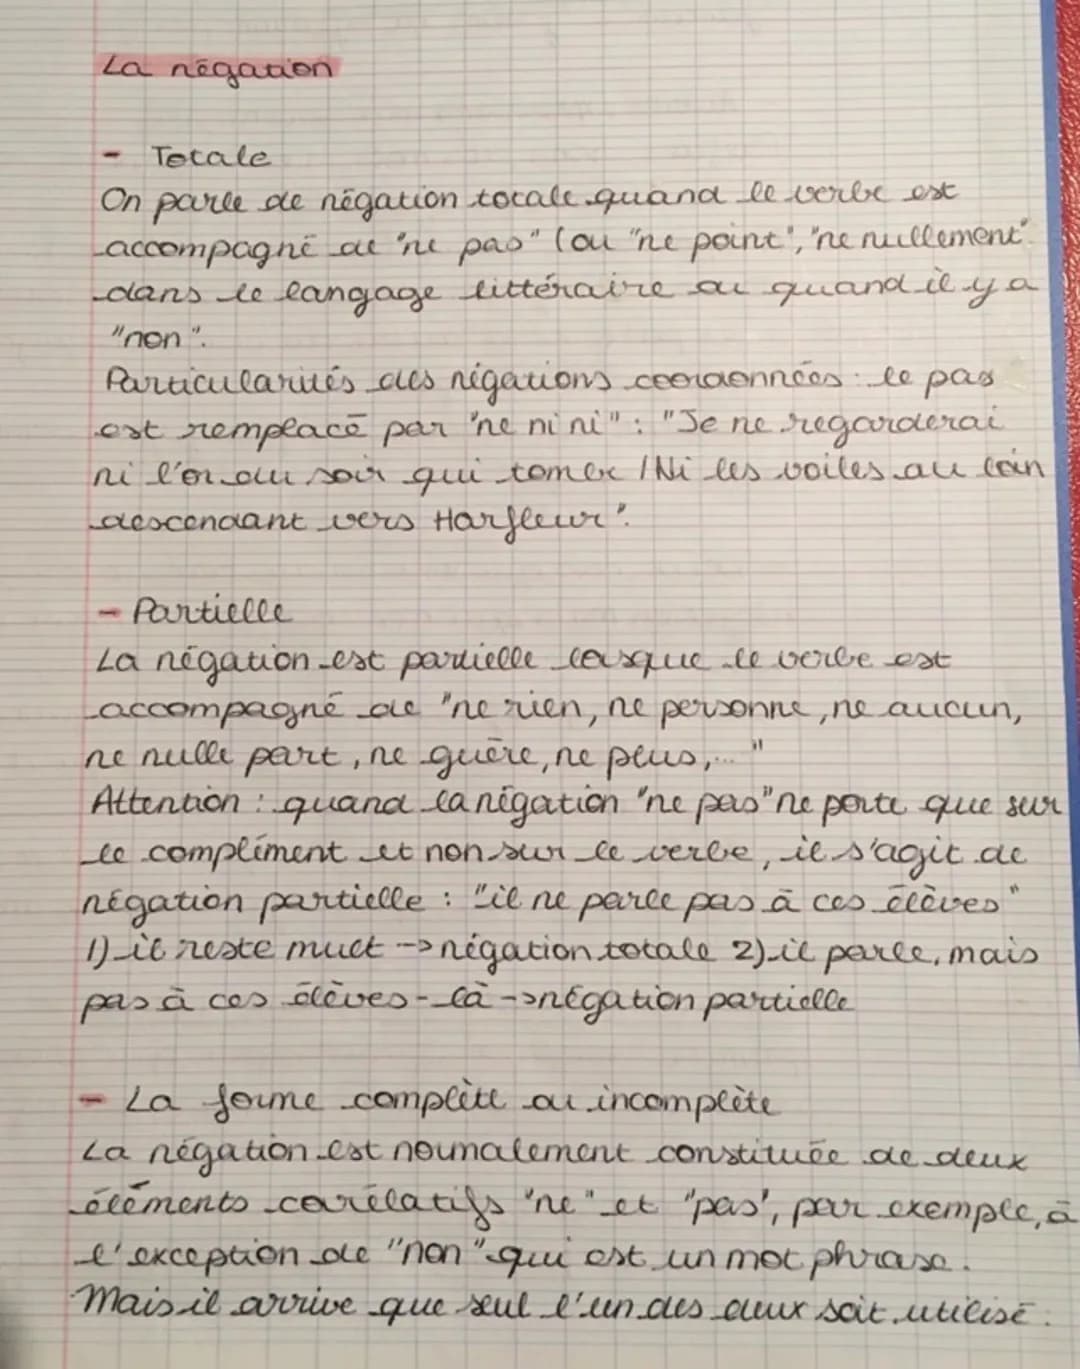 La négation
- Totale
On parle de négation totale quand le verbe est
accompagné de "ne pas" (ou "ne point", "ne nullement"
dans le langage littéraire ou quand il y a
"non".
Particularités des négations coordonnées : le pas
est remplacé par "ne ni ni" : "Je ne regarderai
ni l'or du soir qui tombe / Ni les voiles au loin
descendant vers Harfleur".
- Partielle
La négation est partielle lorsque le verbe est
accompagné de "ne rien, ne personne, ne aucun,
ne nulle part, ne guère, ne plus,... "
Attention : quand la négation "ne pas" ne porte que sur
le complément et non sur le verbe, il s'agit de
négation partielle : "il ne parle pas à ces élèves"
1) il reste muet -> négation totale 2) il parle, mais
pas à ces élèves-là -> négation partielle
- La forme complète ou incomplète
La négation est normalement constituée de deux
éléments corrélatifs "ne" et "pas", par exemple, à
l'exception de "non" qui est un mot phrase.
Mais il arrive que seul l'un des deux soit utilisé.